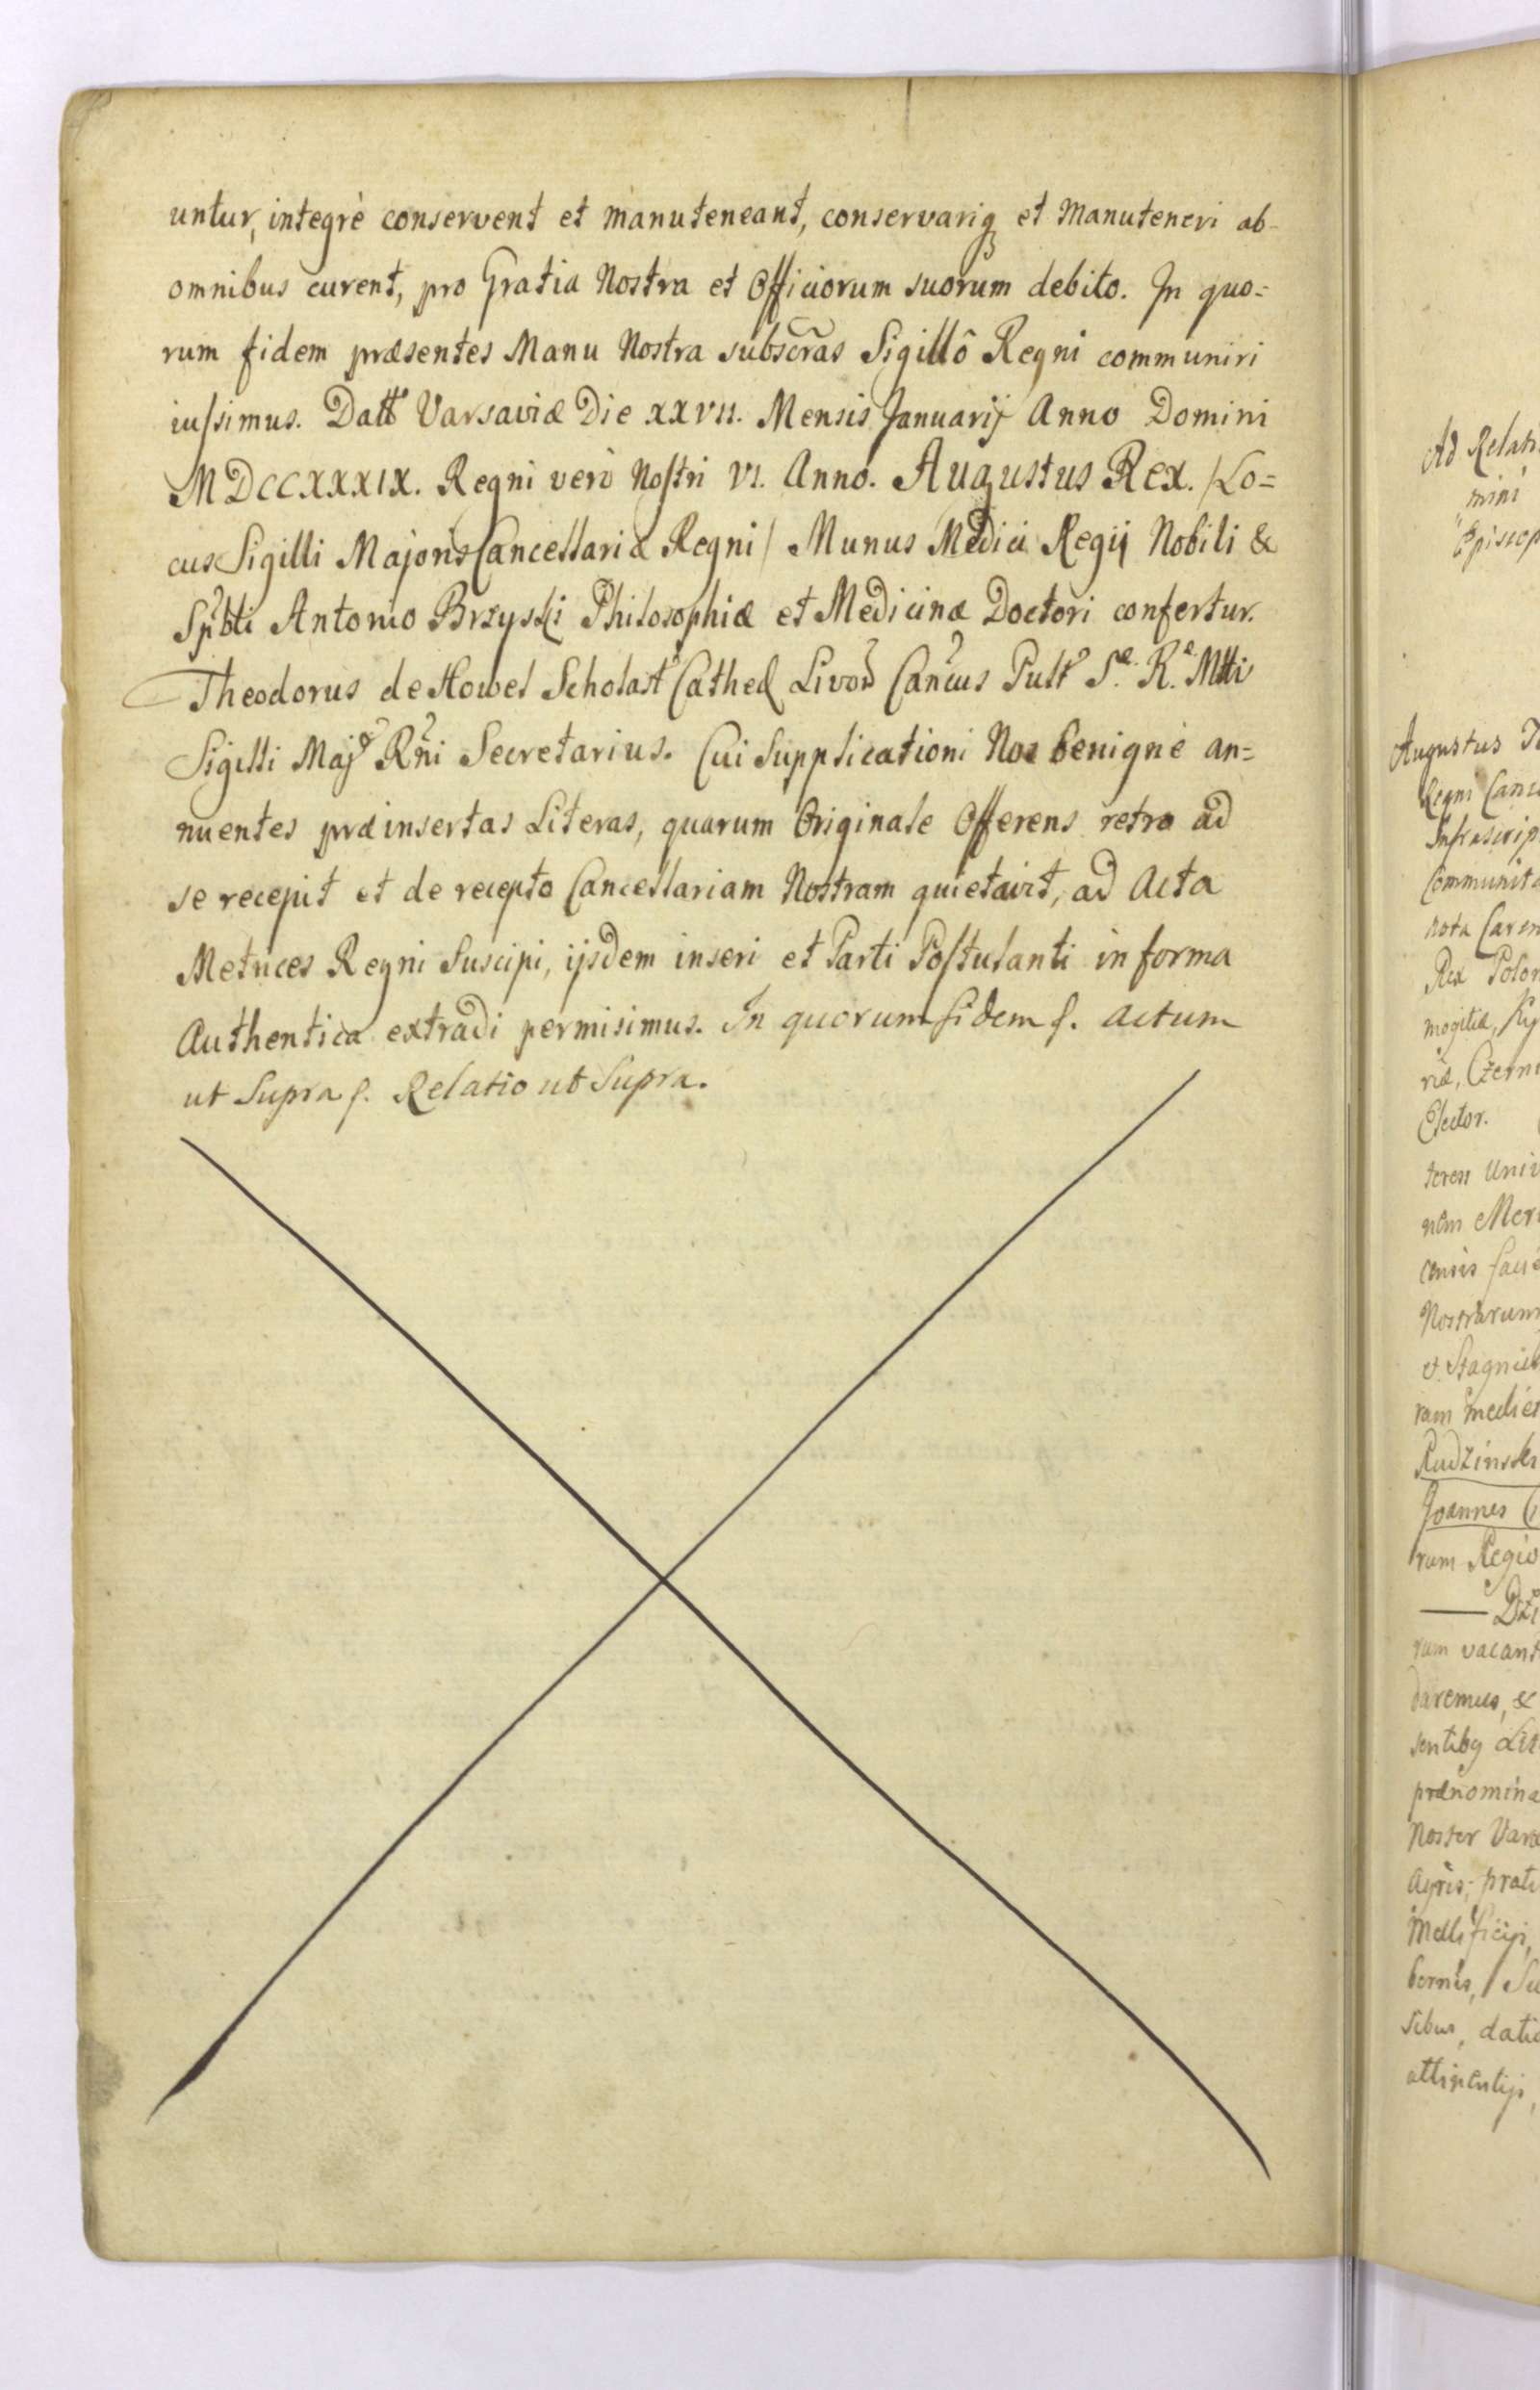 untur, integrè conservent et manuteneant, conservariq et Manuteneri ab-
omnibus curent, pro Gratia Nostra et Officiorum suorum debito. In quo=
rum fidem præsentes Manu Nostra subscr̃as Sigillô Regni communiri
iussimus. Datt Varsaviæ Die XXVII. Mensis Januarij Anno Domini
MDCCXXXIX. Regni verò Nostri VI. Anno. Augustus Rex. /Lo=
cus Sigilli Majoris Cancellariæ Regni/ Munus Medici Regij Nobili &
Spbli Antonio Brzyski Philosophiæ et Medicinæ Doctori confertur.
Theodorus de Howel Scholast Cathed Livon Cancus Pult S. R. Mttis
Sigilli Maj Rni Secretarius. Cui Supplicationi Nos benignè an=
nuentes præinsertas Literas, quarum Originale Offerens retro ad
se recepit et de recepto Cancellariam Nostram quietavit, ad Acta
Metrices Regni Suscipi, ijsdem inseri et Parti Postulanti in forma
Authentica extradi permisimus. In quorum fidem f. Actum
ut Supra f. Relatio ut Supra.
Ad Relati
mini
Episcop
Augustus
Regni Canc
Infrascrip
Communit
nota Caren
Rex Polon
mogitiæ, Ky
riæ, Czerni
Elector.
teress Univ
nem Mer
censis
Nostrarum
et Stagnis
ram mediet
Rudzinski
Joannes
rum Regio
rum vacant
daremus, &
sentibq Lit
prænomina
Noster Var
Agris, prati
Mellificijs,
bernis,
sibus, datio
attinentijs,